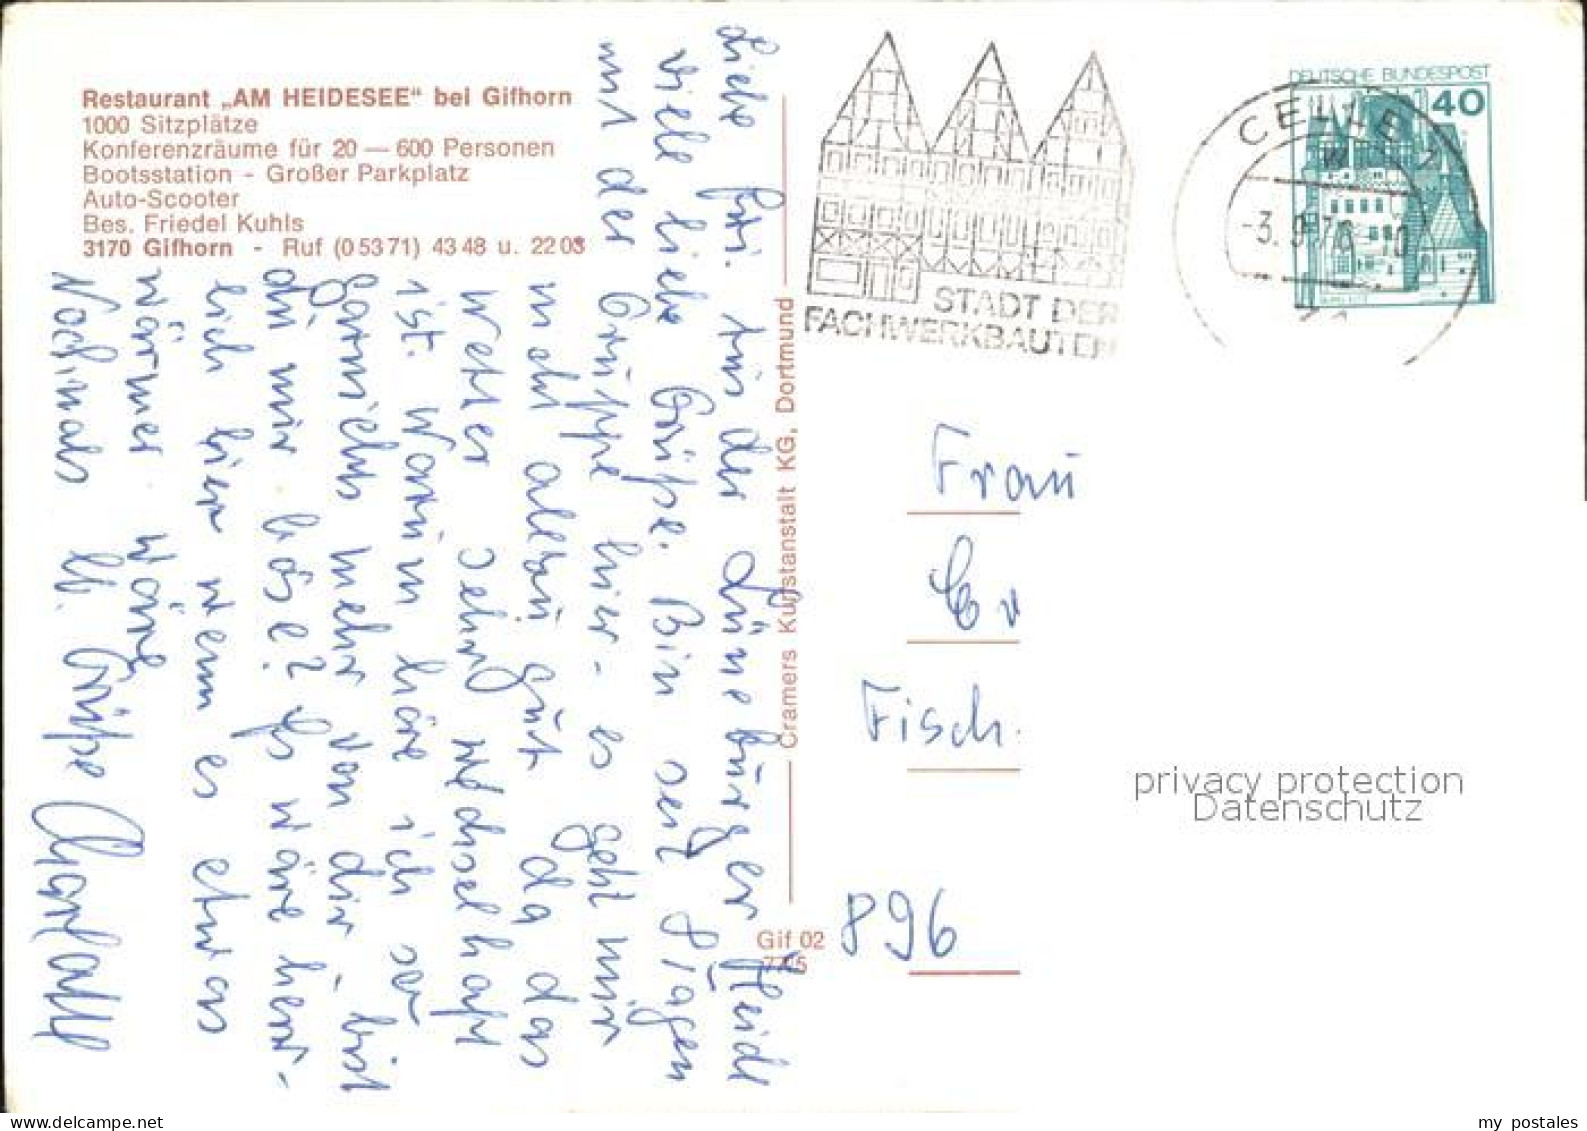 Restaurant „AM HEIDESEE" bei Gifhorn
1000 Sitzplätze
Konferenzräume für 20 — 600 Personen
Bootsstation - Großer Parkplatz
Auto-Scooter
Bes. Friedel Kuhls
3170 Gifhorn - Ruf (05371) 4348 u. 2203
Aus der Lüneburger Heide
viele liebe Grüße. Bin seit 8 Tagen
mit der Gruppe hier - es geht mir
nicht allzu gut da das
Wetter sehr wechselhaft
ist. Warum höre ich
garnichts mehr von dir, bist
du mir böse? Es wäre herr-
lich hier wenn es etwas
wärmer wäre
Nochmals lb. Grüße
Cramers Kunstanstalt KG, Dortmund
Gif 02
STADT DER
FACHWERKBAUTEN
DEUTSCHE BUNDESPOST
40
CELLE
Frau
Fisch
896
privacy protection
Datenschutz
www.delcampe.net
my postales